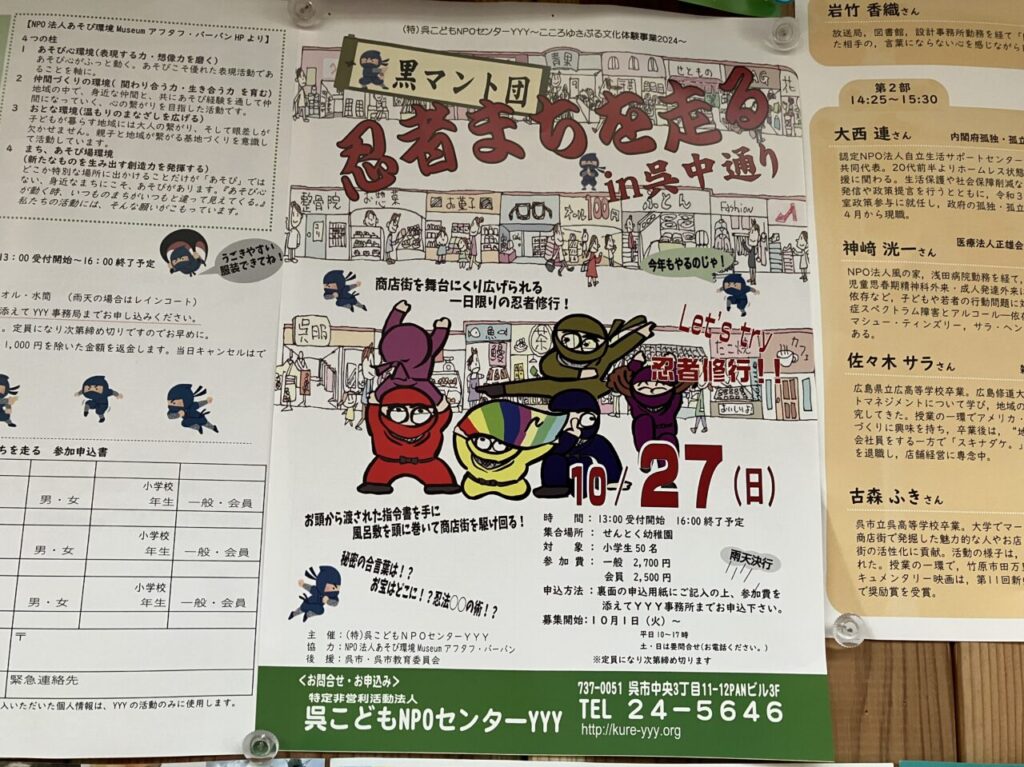 【NPO法人あそび環境Museumアフタフ・バーバンHPより】
4つの柱
1 あそび心環境(表現する力・想像力を磨く)
あそび心がふっと動く。あそびこそ優れた表現活動であ
ることを軸に。
2 仲間づくりの環境(関わり合う力・生き合う力を育む)
地域の中で、身近な仲間と、共にあそび経験を通して仲
間になっていく、心の繋がりを目指した活動です。
3 おとな環境(温もりのまなざしを広げる)
子どもが暮らす地域には大人の繋がり、そして眼差しが
欠かせません。親子と地域が繋がる基地づくりを意識し
て活動しています。
4 まち、あそび場環境
(新たなものを生み出す創造力を発揮する)
どこか特別な場所に出かけることだけが「あそび」では
ない、身近なまちにこそ、あそびがあります。『あそび心
が動く時、いつものまちがいつもと違って見えてくる。』
私たちの活動には、そんな願いがこもっています。
うごきやすい
服装できてね!
13:00受付開始~16:00終了予定
オル・水筒 (雨天の場合はレインコート)
添えてYYY事務局までお申し込みください。
。定員になり次第締め切りですのでお早めに。
1,000円を除いた金額を返金します。当日キャンセルはで
ちを走る 参加申込書
男・女
小学校
年生
一般・会員
男・女
小学校
年生
一般・会員
男・女
小学校
年生
一般・会員
〒
緊急連絡先
入いただいた個人情報は、YYYの活動のみに使用します。
(特)呉こどもNPOセンターYYY~こころゆさぶる文化体験事業2024~
黒マント団
忍者まちを走る
in呉中通り
青果
せともの
花
整骨院
お惣菜
お菓子
オール100円
ふとん
Fashion
今年もやるのじゃ!
商店街を舞台にくり広げられる
一日限りの忍者修行!
呉服
魚
鰻
茶
たこ焼
カフェ
おいしいよ
Let's try
忍者修行!!
10/27(日)
お頭から渡された指令書を手に
風呂敷を頭に巻いて商店街を駆け回る!
秘密の合言葉は!?
お宝はどこに!?忍法○○の術!?
時間:13:00受付開始 16:00終了予定
集合場所:せんとく幼稚園
対象:小学生50名
参加費:一般 2,700円
会員 2,500円
雨天決行
申込方法:裏面の申込用紙にご記入の上、参加費を
添えてYYY事務所までお申込下さい。
募集開始:10月1日(火)~
平日10~17時
土・日は要問合せ(お電話ください。)
※定員になり次第締め切ります
主催:(特)呉こどもNPOセンターYYY
協力:NPO法人あそび環境Museumアフタフ・バーバン
後援:呉市・呉市教育委員会
<お問合せ・お申込み>
特定非営利活動法人
呉こどもNPOセンターYYY
737-0051 呉市中央3丁目11-12PANビル3F
TEL 24-5646
http://kure-yyy.org
岩竹 香織さん
放送局、図書館、設計事務所勤務を経て
た相手の、言葉にならない心を感じながら
第2部
14:25~15:30
大西 連さん 内閣府孤独・孤立
認定NPO法人自立生活サポートセンター
共同代表。20代前半よりホームレス状態
援に関わる。生活保護や社会保障削減な
発信や政策提言を行うとともに、令和3
室政策参与に就任し、政府の孤独・孤立
4月から現職。
神﨑 洸一さん 医療法人正雄会
NPO法人風の家,浅田病院勤務を経て,
児童思春期精神科外来・成人発達外来に
依存など,子どもや若者の行動問題に
症スペクトラム障害とアルコール―依存
マシュー・ティンズリー,サラ・ヘン
ある。
佐々木 サラさん
広島県立広高等学校卒業。広島修道大
トマネジメントについて学び,地域の
究してきた。授業の一環でアメリカ・
づくりに興味を持ち,卒業後は,“地
会社員をする一方で「スキナダケ。」
を退職し,店舗経営に専念中。
古森 ふきさん
呉市立呉高等学校卒業。大学でマー
商店街で発掘した魅力的な人やお店
街の活性化に貢献。活動の様子は,
れた。授業の一環で,竹原市田万里
キュメンタリー映画は,第11回新
で奨励賞を受賞。